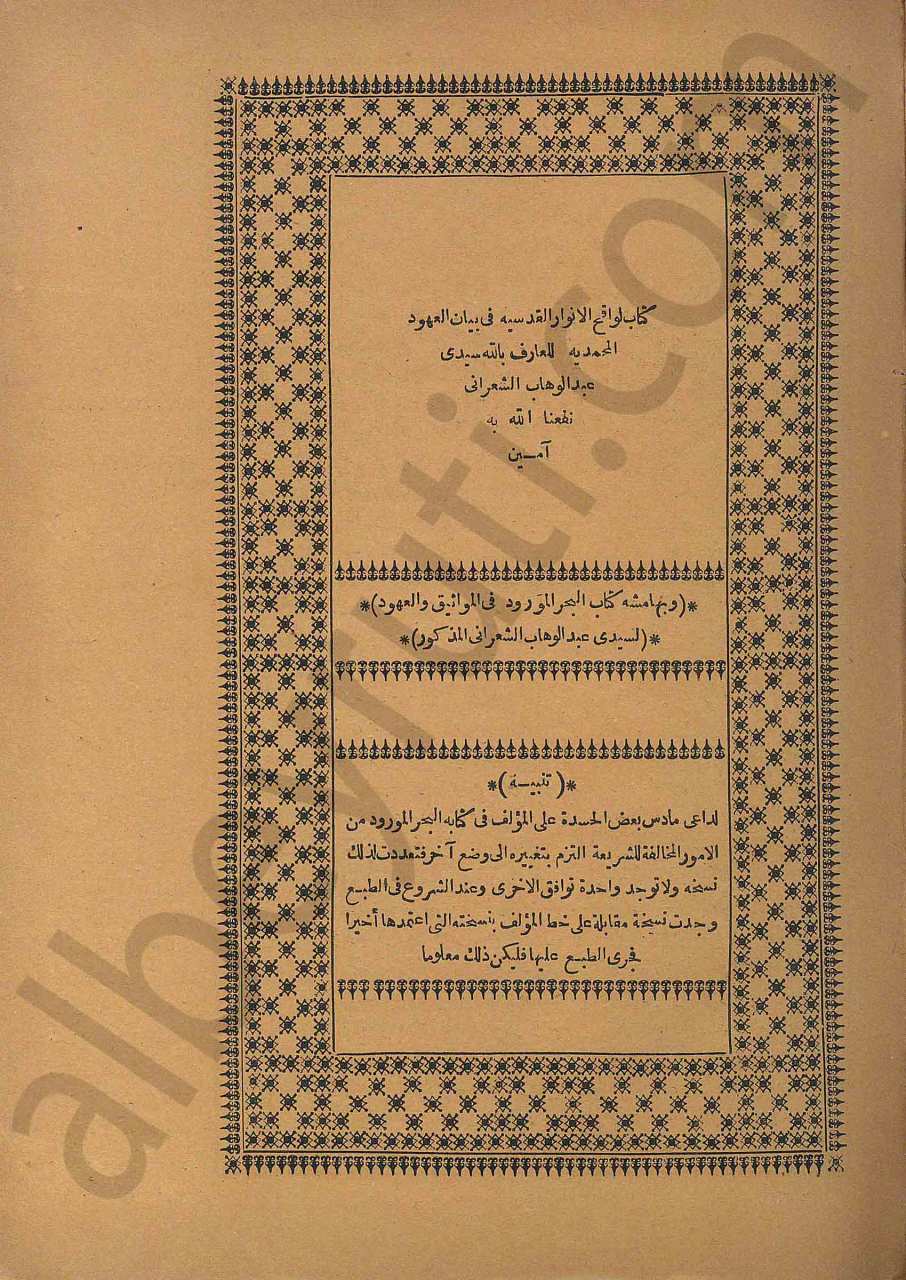 كتاب لواقح الانوار القدسيه فى بيان العهود
المحمديه للعارف بالله سيدى
عبد الوهاب الشعرانى
نفعنا الله به
آمــين
*(وبهامشه كتاب البحر المورود فى المواثيق والعهود)*
*(لسيدى عبد الوهاب الشعرانى المذكور)*
*(تنبيــه)*
لداعى مادس بعض الحسدة على المؤلف فى كتابه البحر المورود من
الامور المخالفة للشريعة التزم بتغييره الى وضع آخر فتعددت لذلك
نسخه ولا توجد واحدة توافق الاخرى وعند الشروع فى الطبع
وجدت نسخة مقابلة على خط المؤلف بنسخته التى اعتمدها أخيرا
فجرى الطبع عليها فليكن ذلك معلوما
albeyruti.com